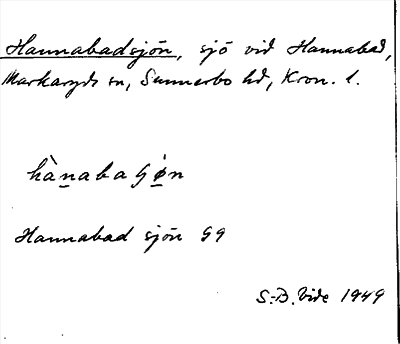 Hannabadsjön, sjö vid Hannabad,
Markaryds sn, Sunnerbo hd, Kron. l.
hànabaʃø̀n
Hannabad sjön G9
S.-B. Vide 1949